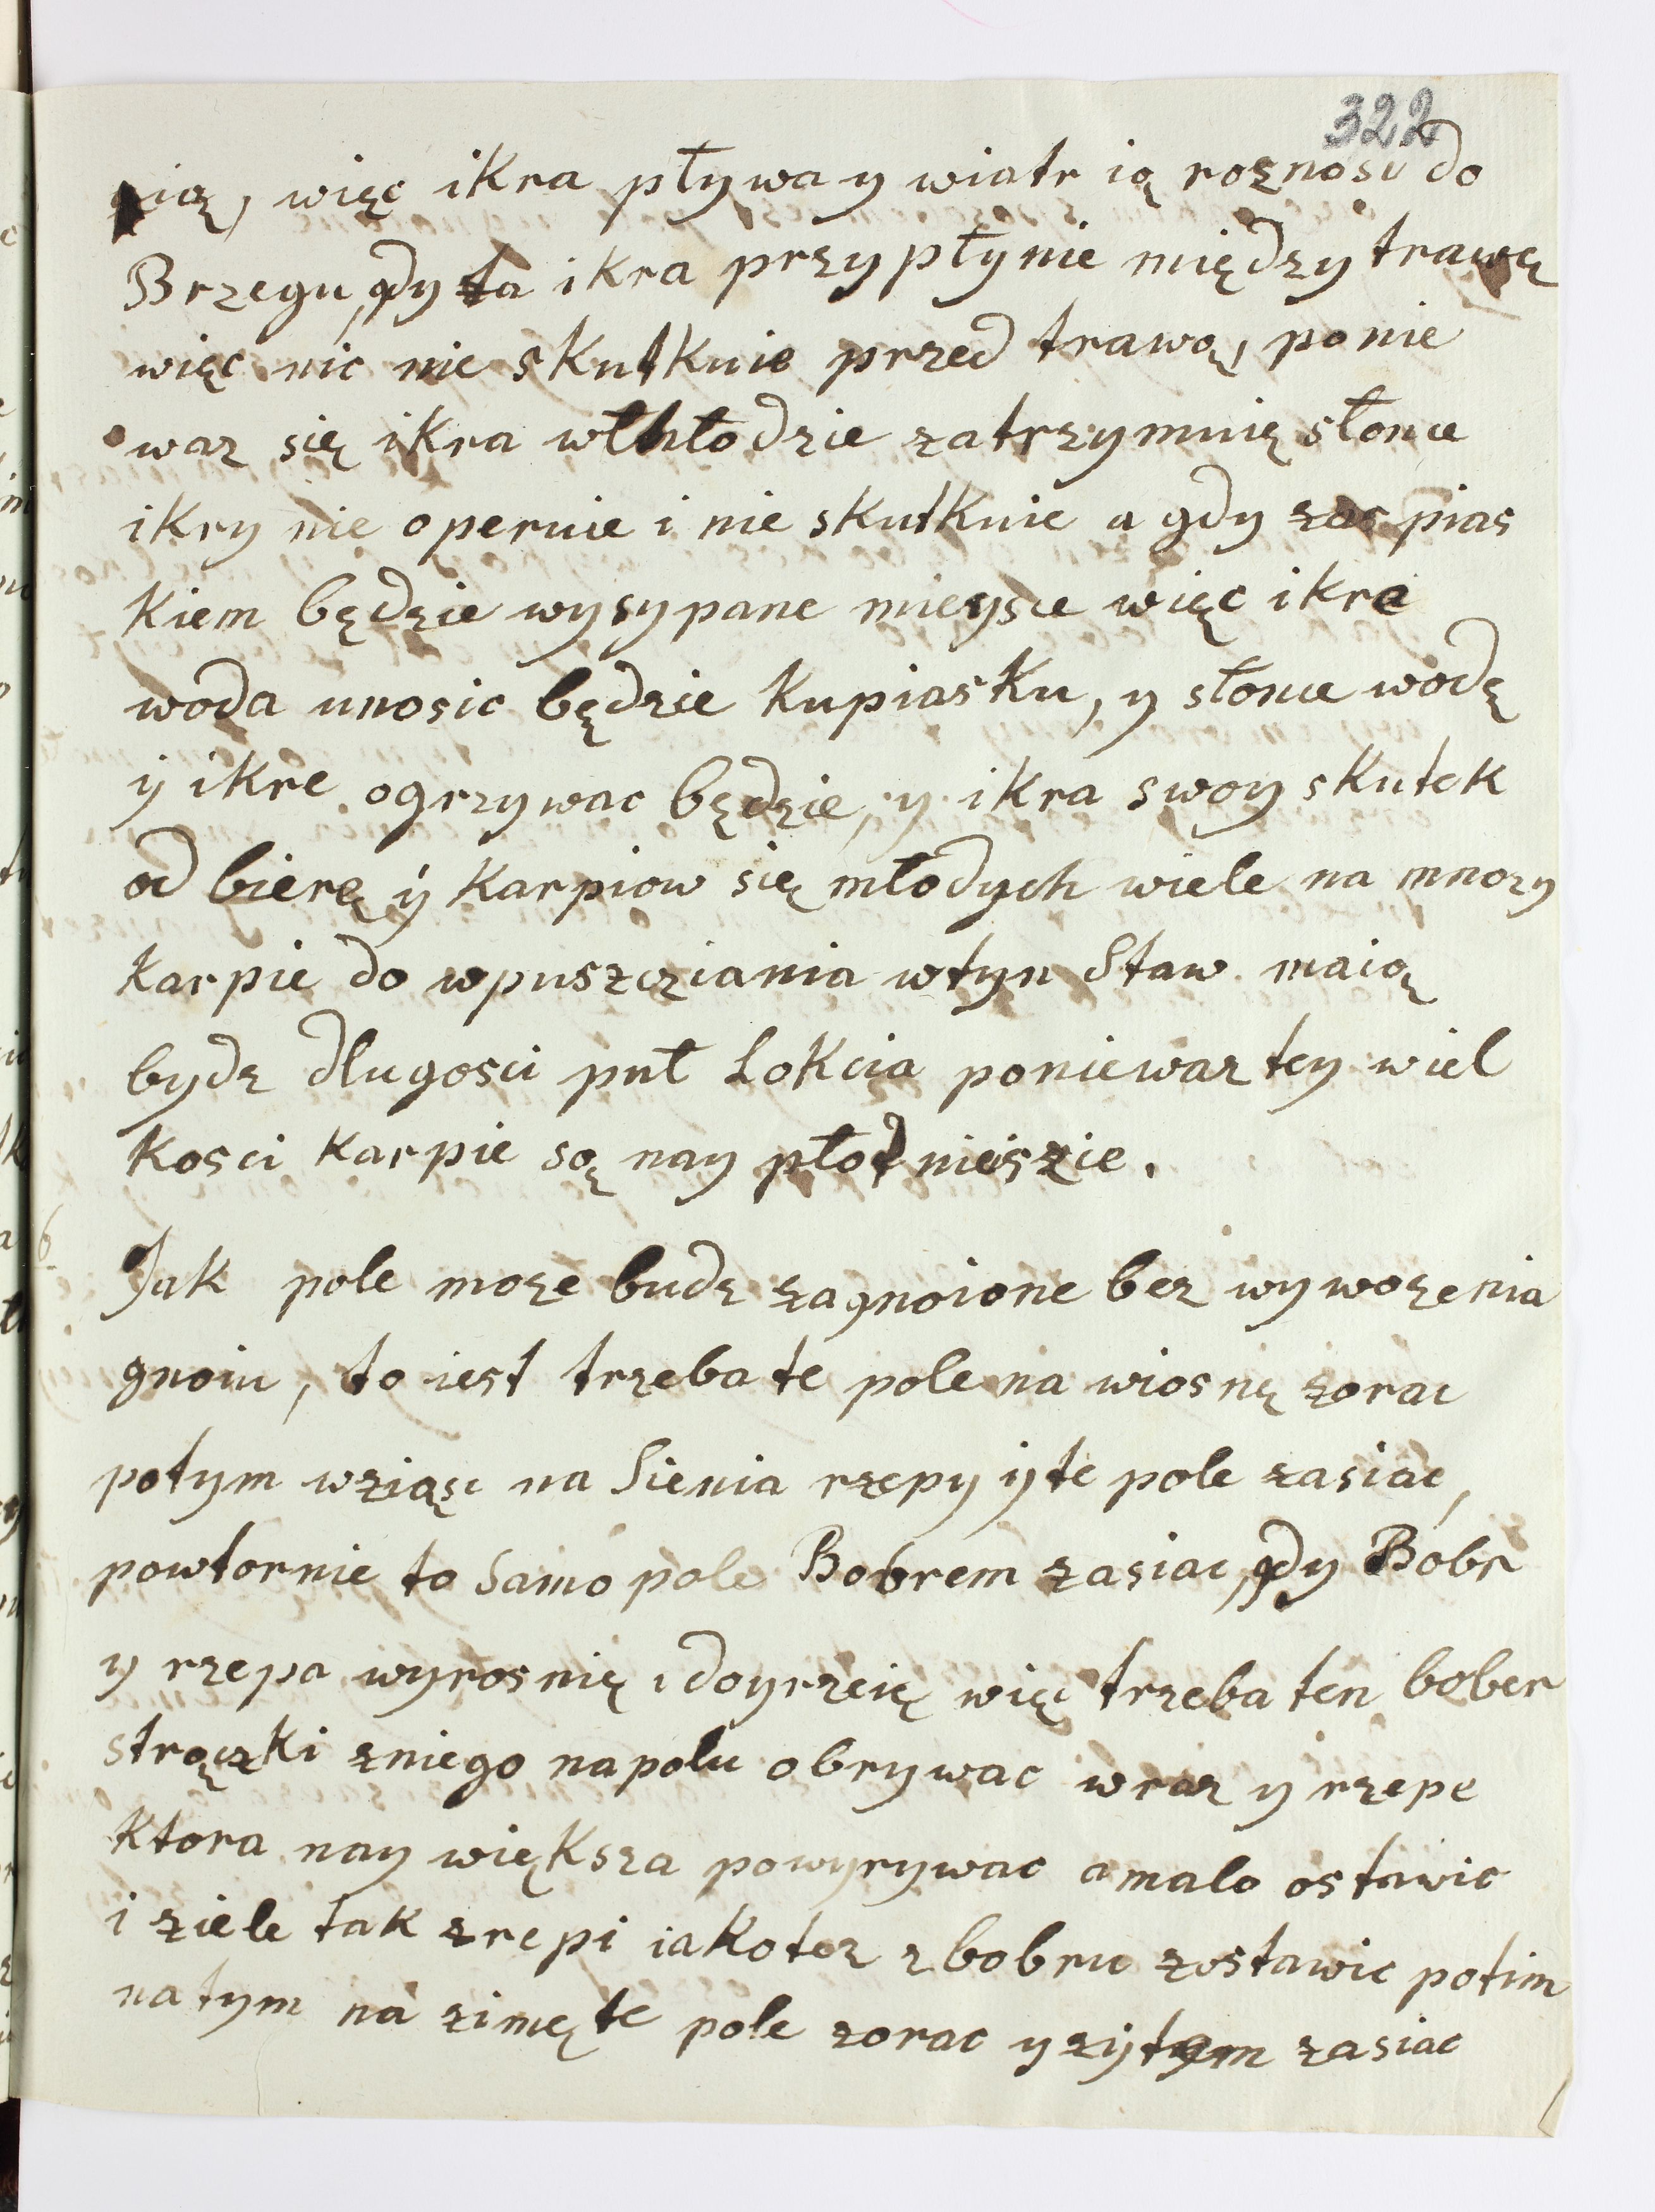 322
nią, więc ikra pływa y wiatr ią roznosi do
Brzegu, gdy ta ikra przypłynie między trawę
więc nic nie skutkuie przed trawą, ponie
waz się ikra w chłodzie zatrzymuię słonce
ikry nie operuie i nie skutkuie a gdy zas pias
kiem będzie wysypane mieysce więc ikre
woda unosic będzie ku piasku, y słonce wodę
y ikre ogrzywac będzie, y ikra swoy skutek
od bierę y karpiow się młodych wiele na mnozy
karpie do wpuszcziania w tyn Staw maią
bydz dlugosci puł Łokcia poniewaz tey wiel
kosci karpie są nay płodnieiszie.
6
Jak pole moze budz zagnoione bez wywozenia
gnoiu, to iest trzeba te pole na wiosnę zorac
potym wziąsc na Sienia rzepy y te pole zasiac,
powtornie to Samo pole Bobrem zasiac, gdy Bobr
y rzepa wyrosnię i doyrzeię więc trzeba ten bober
strączki z niego na polu obrywac wraz y rzepe
ktora nay większa powyrywac a malo ostawic
i ziele tak z repi iako tez z bobru zostawic potim
na tym na zimę te pole zorac y zytem zasiac